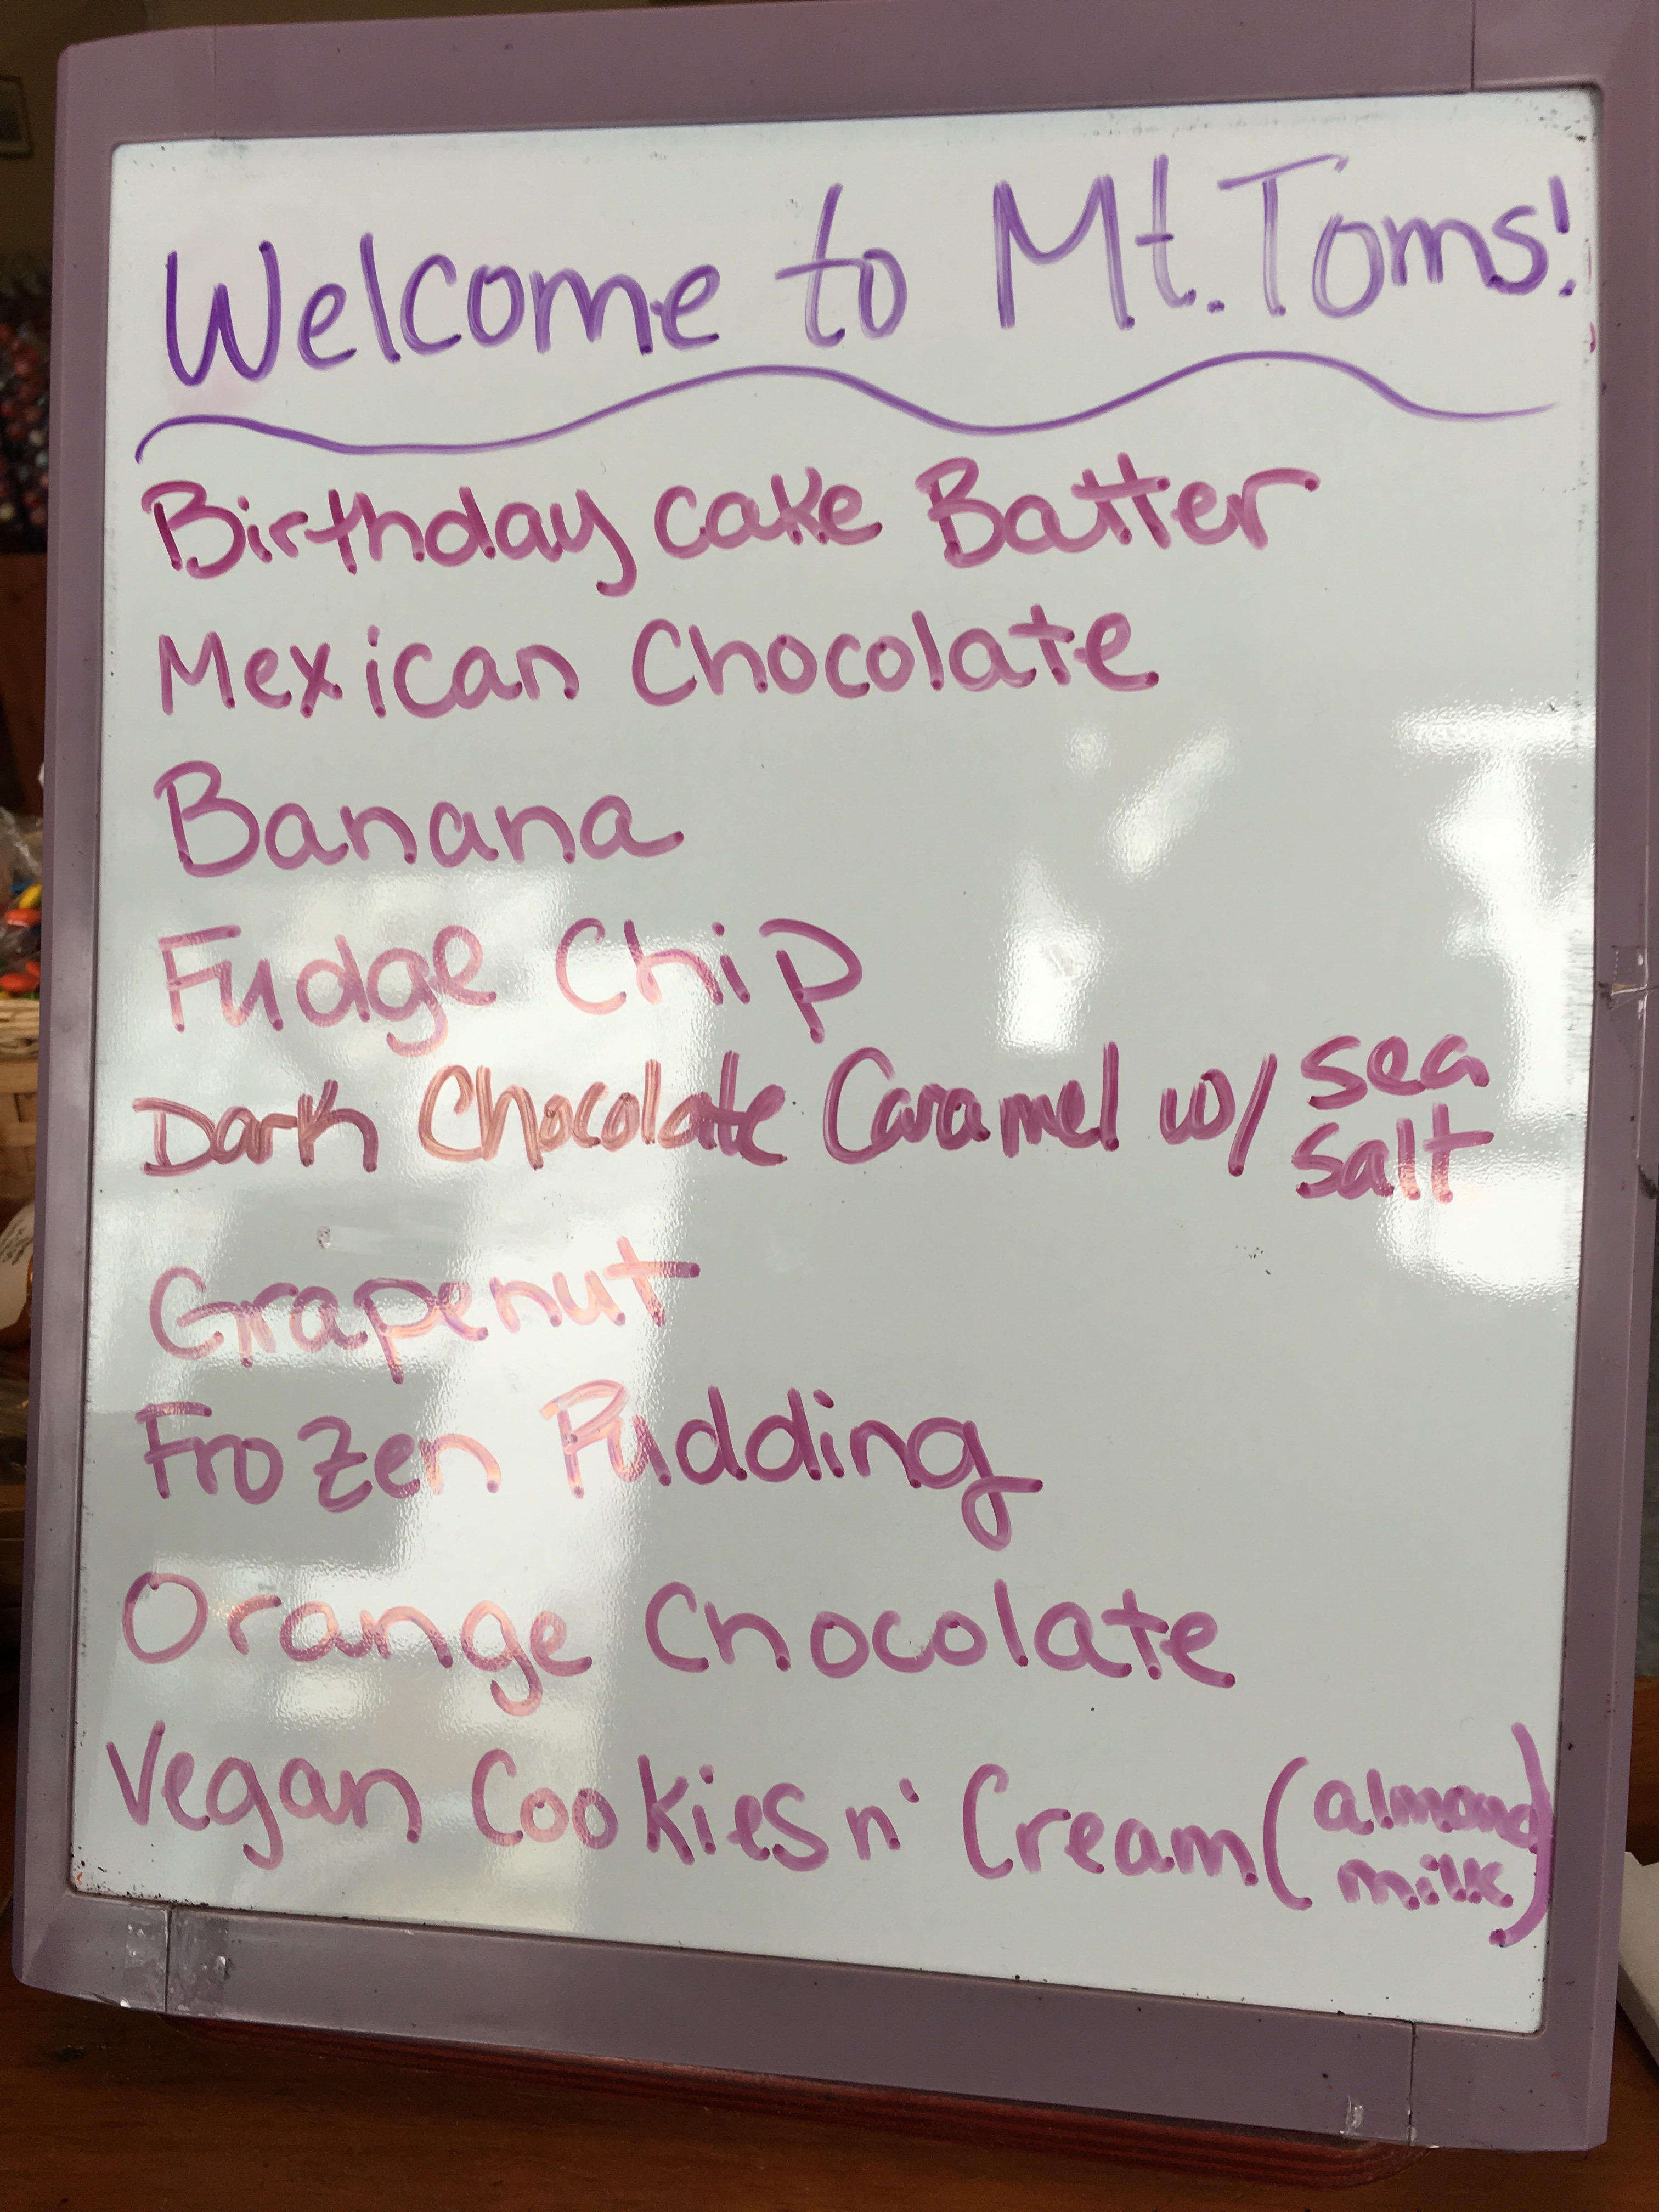 Welcome to Mt. Toms!
Birthday cake Batter
Mexican Chocolate
Banana
Fudge Chip
Dark Chocolate Caramel w/ sea
salt
Grapenut
Frozen Pudding
Orange Chocolate
Vegan Cookies n' Cream (almond
milk)